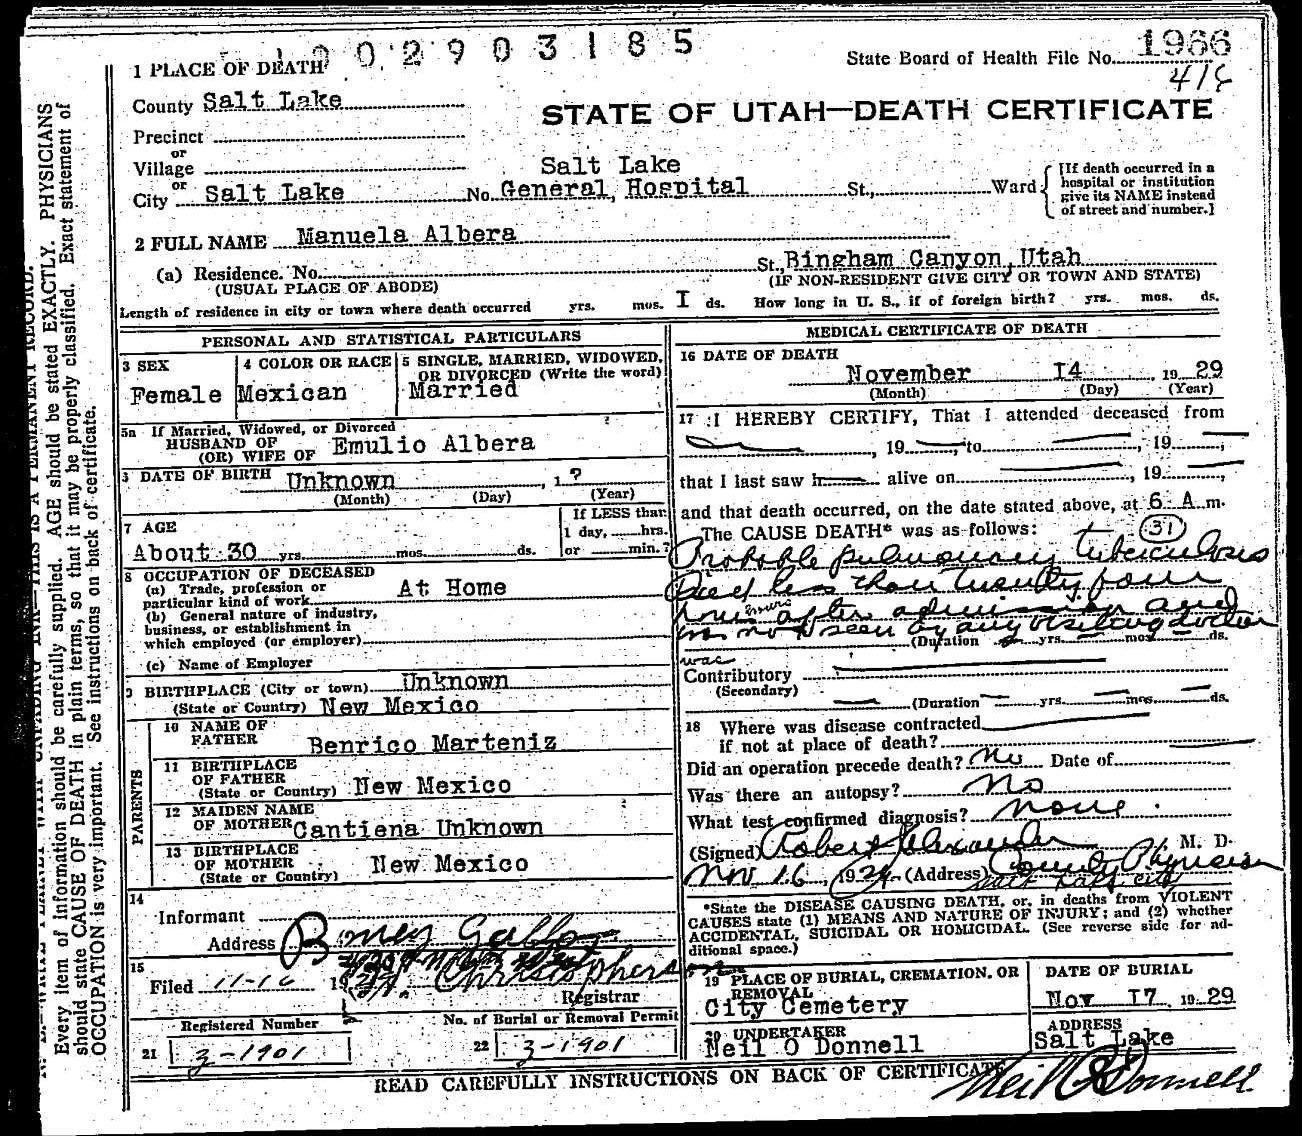 1002903185
State Board of Health File No. 1966
416
1 PLACE OF DEATH
County Salt Lake
STATE OF UTAH—DEATH CERTIFICATE
Precinct
or
Village
or
City Salt Lake No. Salt Lake General Hospital St., Ward
[If death occurred in a
hospital or institution
give its NAME instead
of street and number.]
2 FULL NAME Manuela Albera
(a) Residence. No. St., Bingham Canyon, Utah
(USUAL PLACE OF ABODE) (IF NON-RESIDENT GIVE CITY OR TOWN AND STATE)
Length of residence in city or town where death occurred yrs. mos. I ds. How long in U. S., if of foreign birth? yrs. mos. ds.
PERSONAL AND STATISTICAL PARTICULARS
3 SEX
Female
4 COLOR OR RACE
Mexican
5 SINGLE, MARRIED, WIDOWED,
OR DIVORCED (Write the word)
Married
5a If Married, Widowed, or Divorced
HUSBAND OF
(OR) WIFE OF Emulio Albera
DATE OF BIRTH Unknown, 1 ?
(Month) (Day) (Year)
7 AGE
About 30 yrs. mos. ds.
If LESS than
1 day, hrs.
or min.?
8 OCCUPATION OF DECEASED
(a) Trade, profession or
particular kind of work At Home
(b) General nature of industry,
business, or establishment in
which employed (or employer)
(c) Name of Employer
9 BIRTHPLACE (City or town) Unknown
(State or Country) New Mexico
PARENTS
10 NAME OF
FATHER Benrico Marteniz
11 BIRTHPLACE
OF FATHER
(State or Country) New Mexico
12 MAIDEN NAME
OF MOTHER Cantiena Unknown
13 BIRTHPLACE
OF MOTHER
(State or Country) New Mexico
14
Informant
Address
15
Filed 11-16 19 Christopherson
Registrar
Registered Number
21 3-1901
No. of Burial or Removal Permit
22 3-1901
MEDICAL CERTIFICATE OF DEATH
16 DATE OF DEATH
November I4, 19 29
(Month) (Day) (Year)
17 I HEREBY CERTIFY, That I attended deceased from
, 19 , to , 19 ,
that I last saw h alive on , 19 ,
and that death occurred, on the date stated above, at 6 A m.
The CAUSE DEATH* was as follows: 31
Probable pulmonary tuberculosis
Died less than twenty four
hours hours after admission and
was not seen by any visiting doctor
(Duration yrs. mos. ds.
was
Contributory
(Secondary)
(Duration yrs. mos. ds.
18 Where was disease contracted
if not at place of death?
Did an operation precede death? No Date of
Was there an autopsy? No
What test confirmed diagnosis? none.
(Signed) Robert Alexander, M. D.
Nov 16, 1929 (Address) County Physician
Salt Lake City
*State the DISEASE CAUSING DEATH, or, in deaths from VIOLENT
CAUSES state (1) MEANS AND NATURE OF INJURY; and (2) whether
ACCIDENTAL, SUICIDAL OR HOMICIDAL. (See reverse side for ad-
ditional space.)
19 PLACE OF BURIAL, CREMATION, OR
REMOVAL
City Cemetery
DATE OF BURIAL
Nov I7 19 29
20 UNDERTAKER
Neil O Donnell
ADDRESS
Salt Lake
READ CAREFULLY INSTRUCTIONS ON BACK OF CERTIFICATE
Neil O'Donnell
Every item of information should be carefully supplied. AGE should be stated EXACTLY. PHYSICIANS
should state CAUSE OF DEATH in plain terms, so that it may be properly classified. Exact statement of
OCCUPATION is very important. See instructions on back of certificate.